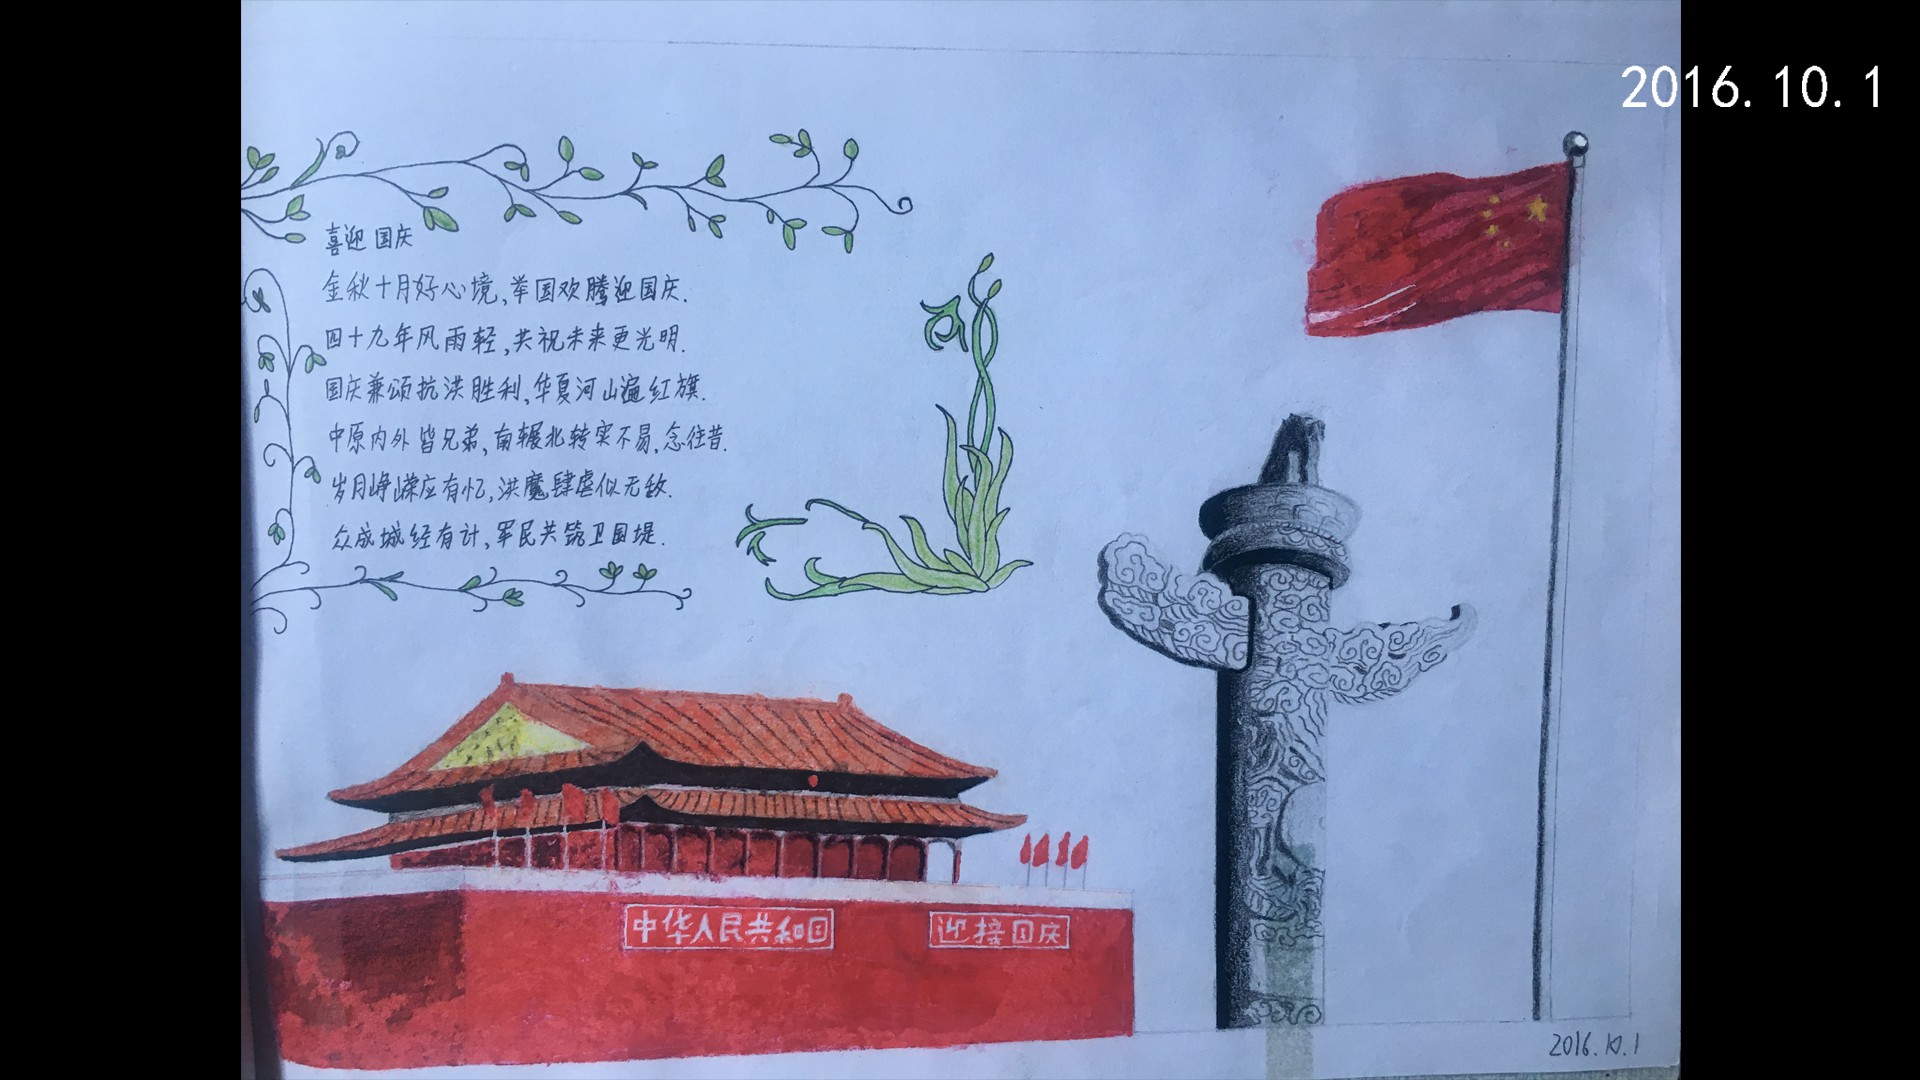 2016.10.1
喜迎国庆
金秋十月好心境,举国欢腾迎国庆.
四十九年风雨轻,共祝未来更光明.
国庆兼颂抗洪胜利,华夏河山遍红旗.
中原内外皆兄弟,南辗北转实不易,念往昔.
岁月峥嵘应有忆,洪魔肆虐似无敌.
众成城经有计,军民共筑卫国堤.
中华人民共和国
迎接国庆
2016.10.1